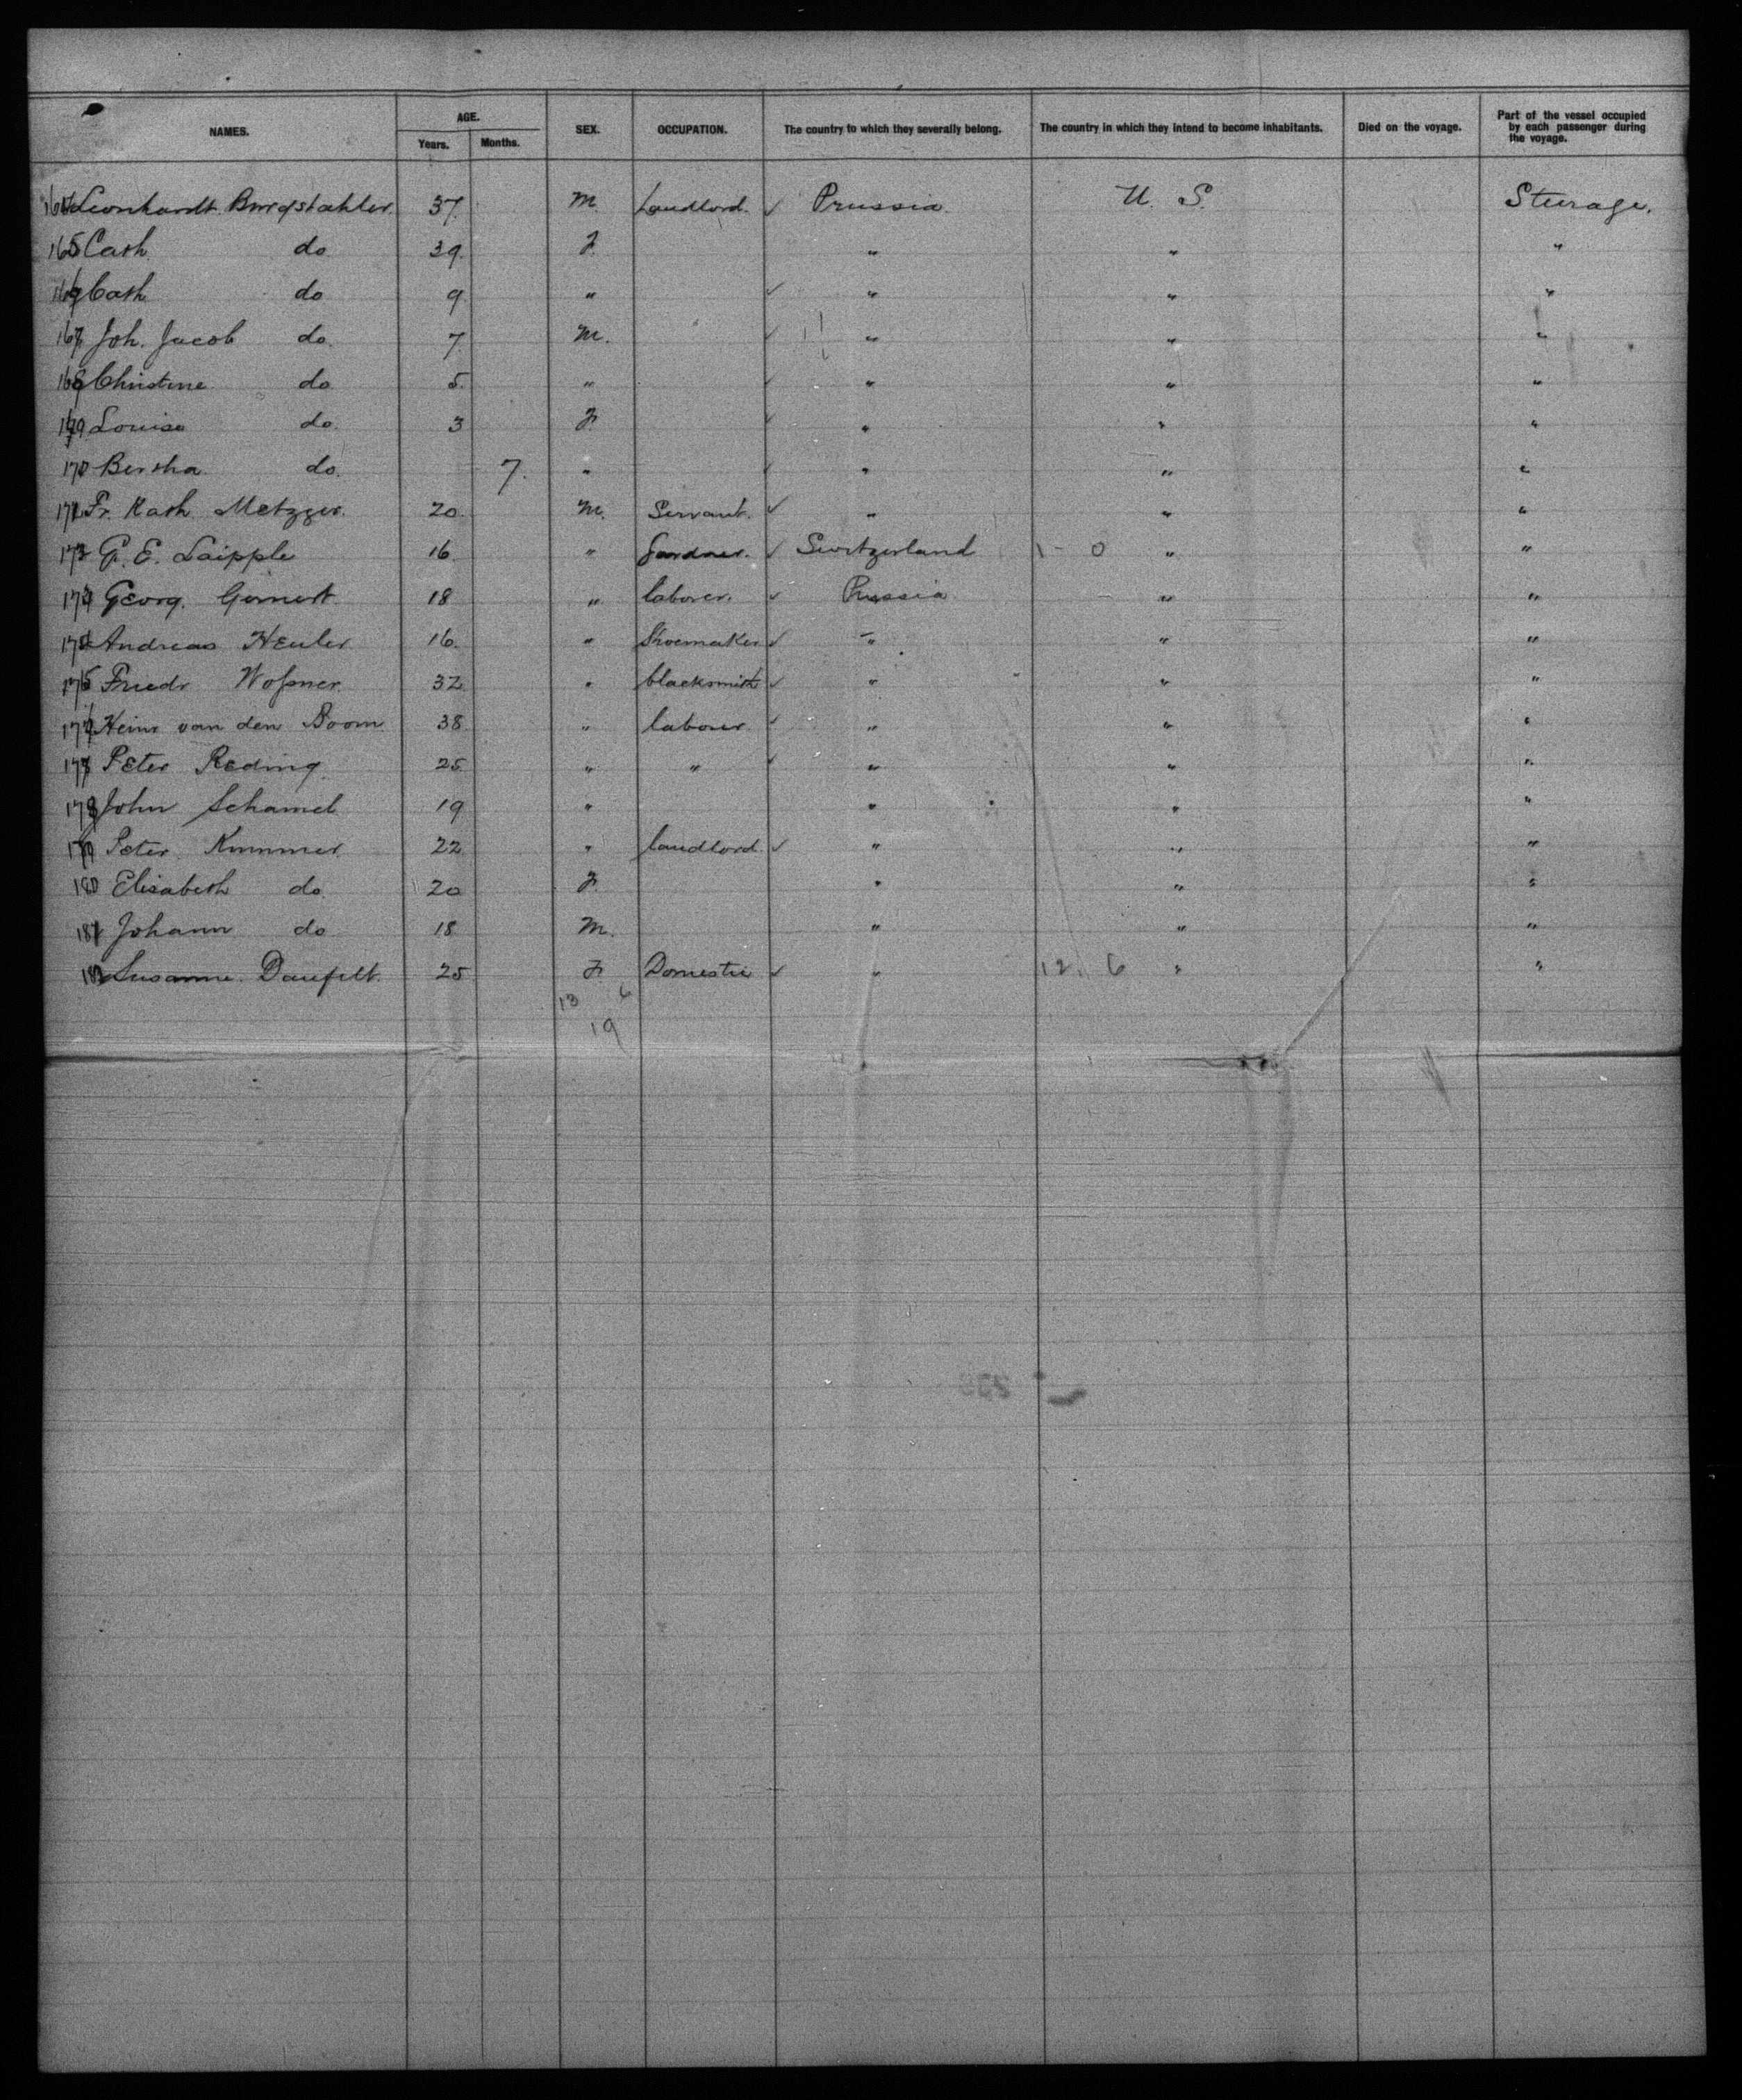 NAMES. AGE. Years. Months. SEX. OCCUPATION. The country to which they severally belong. The country in which they intend to become inhabitants. Died on the voyage. Part of the vessel occupied by each passenger during the voyage.
164 Leonhardt Burgstahler 37. M. Landlord. ✓ Prussia. U. S. Steerage.
165 Cath. do 39. F. " " "
Cath do 9 " ✓ " " "
167 Joh. Jacob do. 7. M. ✓ " " "
168 Christine do 5. " ✓ " " "
Louise do. 3 F. ✓ " " "
170 Bertha do. 7. " ✓ " " "
171 Fr. Kath Metzger. 20. M. Servant. ✓ " " "
G. E. Laipple 16. " Gardner. ✓ Switzerland 1 - 0 " "
Georg. Gernert 18 " laborer. ✓ Prussia " "
Andreas Heuler 16. " Shoemaker ✓ " " "
175 Friedr Woſsner 32. " blacksmith ✓ " " "
Heinr van den Boom 38. " laborer ✓ " " "
177 Peter Reding. 25 " " ✓ " " "
178 John Schamel 19 " " " "
Peter Kummer. 22 " landlord. ✓ " " "
180 Elisabeth do. 20 F. " " "
181 Johann do 18 M. " " "
Susanne Daufelt. 25 F. Domestic ✓ " 12. 6 " "
13 6
19